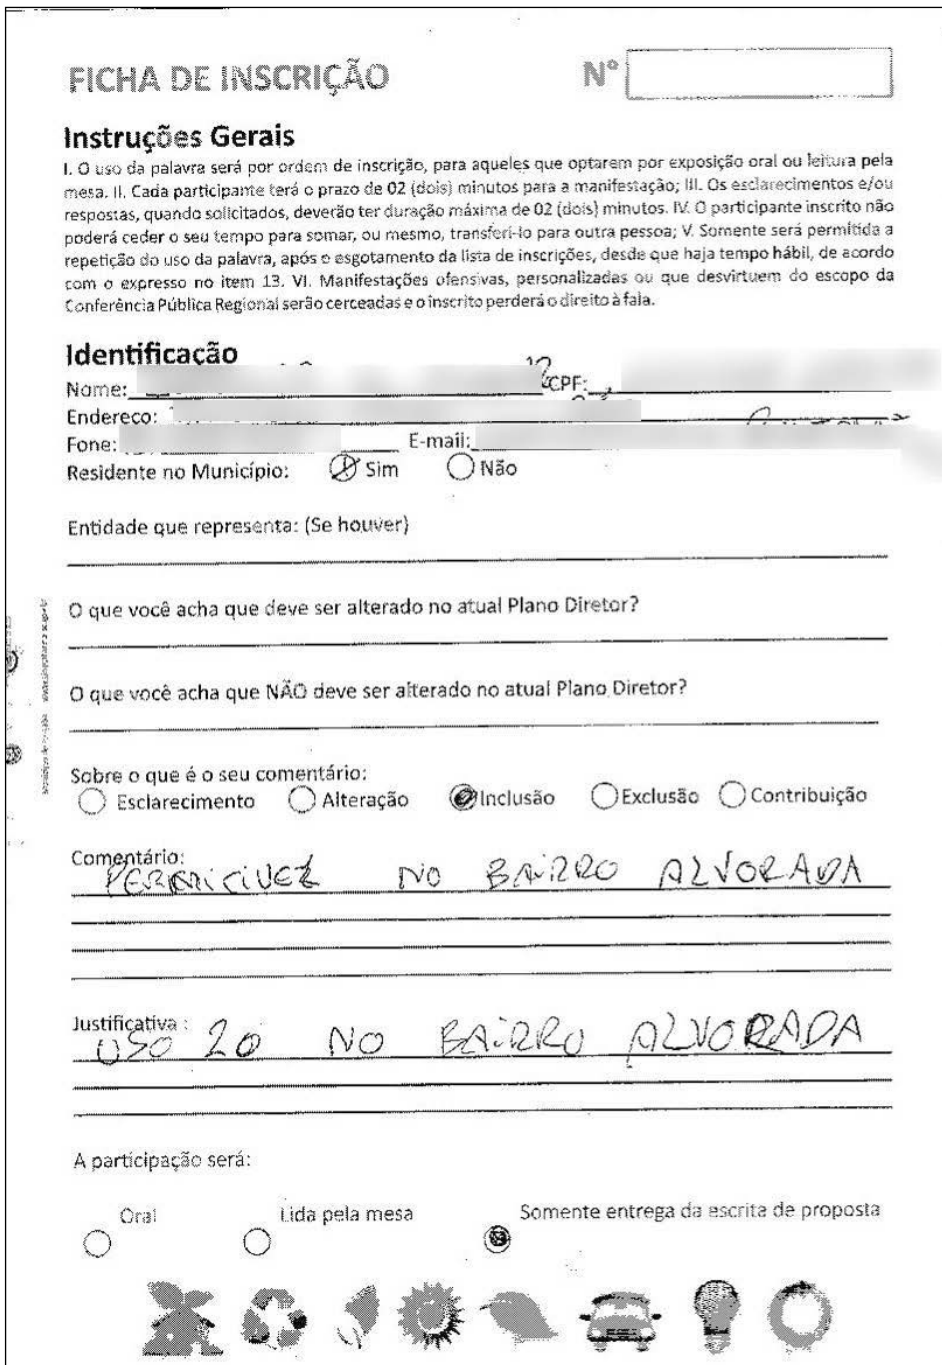 FICHA DE INSCRIÇÃO
Nº
Instruções Gerais
I. O uso da palavra será por ordem de inscrição, para aqueles que optarem por exposição oral ou leitura pela
mesa. II. Cada participante terá o prazo de 02 (dois) minutos para a manifestação; III. Os esclarecimentos e/ou
respostas, quando solicitados, deverão ter duração máxima de 02 (dois) minutos. IV. O participante inscrito não
poderá ceder o seu tempo para somar, ou mesmo, transferi-lo para outra pessoa; V. Somente será permitida a
repetição do uso da palavra, após o esgotamento da lista de inscrições, desde que haja tempo hábil, de acordo
com o expresso no item 13. VI. Manifestações ofensivas, personalizadas ou que desvirtuem do escopo da
Conferência Pública Regional serão cerceadas e o inscrito perderá o direito à fala.
Identificação
Nome: CPF:
Endereço:
Fone: E-mail:
Residente no Município: Sim Não
Entidade que representa: (Se houver)
O que você acha que deve ser alterado no atual Plano Diretor?
O que você acha que NÃO deve ser alterado no atual Plano Diretor?
Sobre o que é o seu comentário:
Esclarecimento Alteração Inclusão Exclusão Contribuição
Comentário:
NO BAIRRO ALVORADA
Justificativa :
USO 20 NO BAIRRO ALVORADA
A participação será:
Oral Lida pela mesa Somente entrega da escrita de proposta